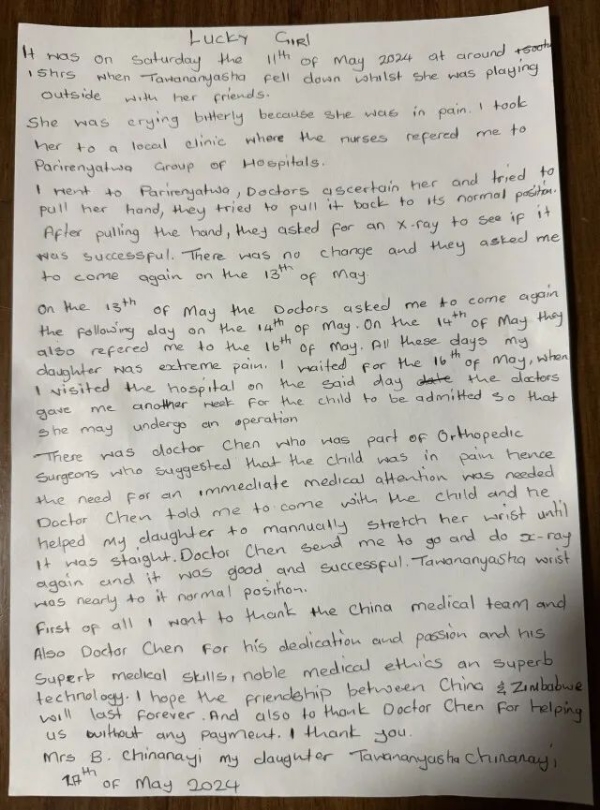 Lucky Girl
It was on Saturday the 11th of May 2024 at around
15hrs when Tawananyasha fell down whilst she was playing
outside with her friends.
She was crying bitterly because she was in pain. I took
her to a local clinic where the nurses refered me to
Parirenyatwa Group of Hospitals.
I went to Parirenyatwa, Doctors ascertain her and tried to
pull her hand, they tried to pull it back to its normal position.
After pulling the hand, they asked for an X-ray to see if it
was successful. There was no change and they asked me
to come again on the 13th of May
On the 13th of May the Doctors asked me to come again
the following day on the 14th of May. On the 14th of May they
also refered me to the 16th of May. All these days my
daughter was extreme pain. I waited for the 16th of May, when
I visited the hospital on the said day date the doctors
gave me another week for the child to be admitted so that
she may undergo an operation
There was doctor Chen who was part of Orthopedic
Surgeons who suggested that the child was in pain hence
the need for an immediate medical attention was needed
Doctor Chen told me to come with the child and he
helped my daughter to mannually stretch her wrist until
It was staight. Doctor Chen send me to go and do x-ray
again and it was good and successful. Tawananyasha wrist
was nearly to it normal position.
First of all I want to thank the China medical team and
Also Doctor Chen for his dedication and passion and his
Superb medical skills, noble medical ethics an superb
technology. I hope the friendship between China & Zimbabwe
will last forever. And also to thank Doctor Chen for helping
us without any payment. I thank you.
Mrs B. Chinanayi my daughter Tawananyasha Chinanayi
of May 2024